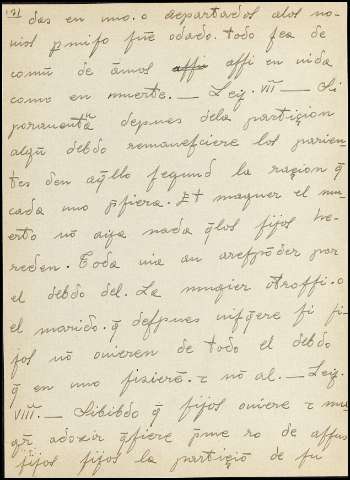 171
das en uno. o departados alos no-
uios p mifo fue odado. todo fea de
comũ de ãmos affi en uida
como en muerte. — Ley. VII — Si
porauentᵃ depues dela partiçion
algũ debdo remaneficiere los parien-
tes den aq̃llo fegund la raçion q̃
cada uno p̃fiera. Et maguer el mu-
erto nõ aya nada q̃los fijos he-
reden. Toda uia an arefpõder por
el debdo del. La mugier otroffi. o
el marido. q̃ defpues uifq̃ere fi fi-
jos nõ ouieren de todo el debdo
q̃ en uno fizierẽ. τ nõ al. — Ley.
VIII. — Sibibdo q̃ fijos ouiere τ mu-
gr̃ adoxir q̃fiere p̃me ro de affus
fijos fijos la partiçiõ de fu